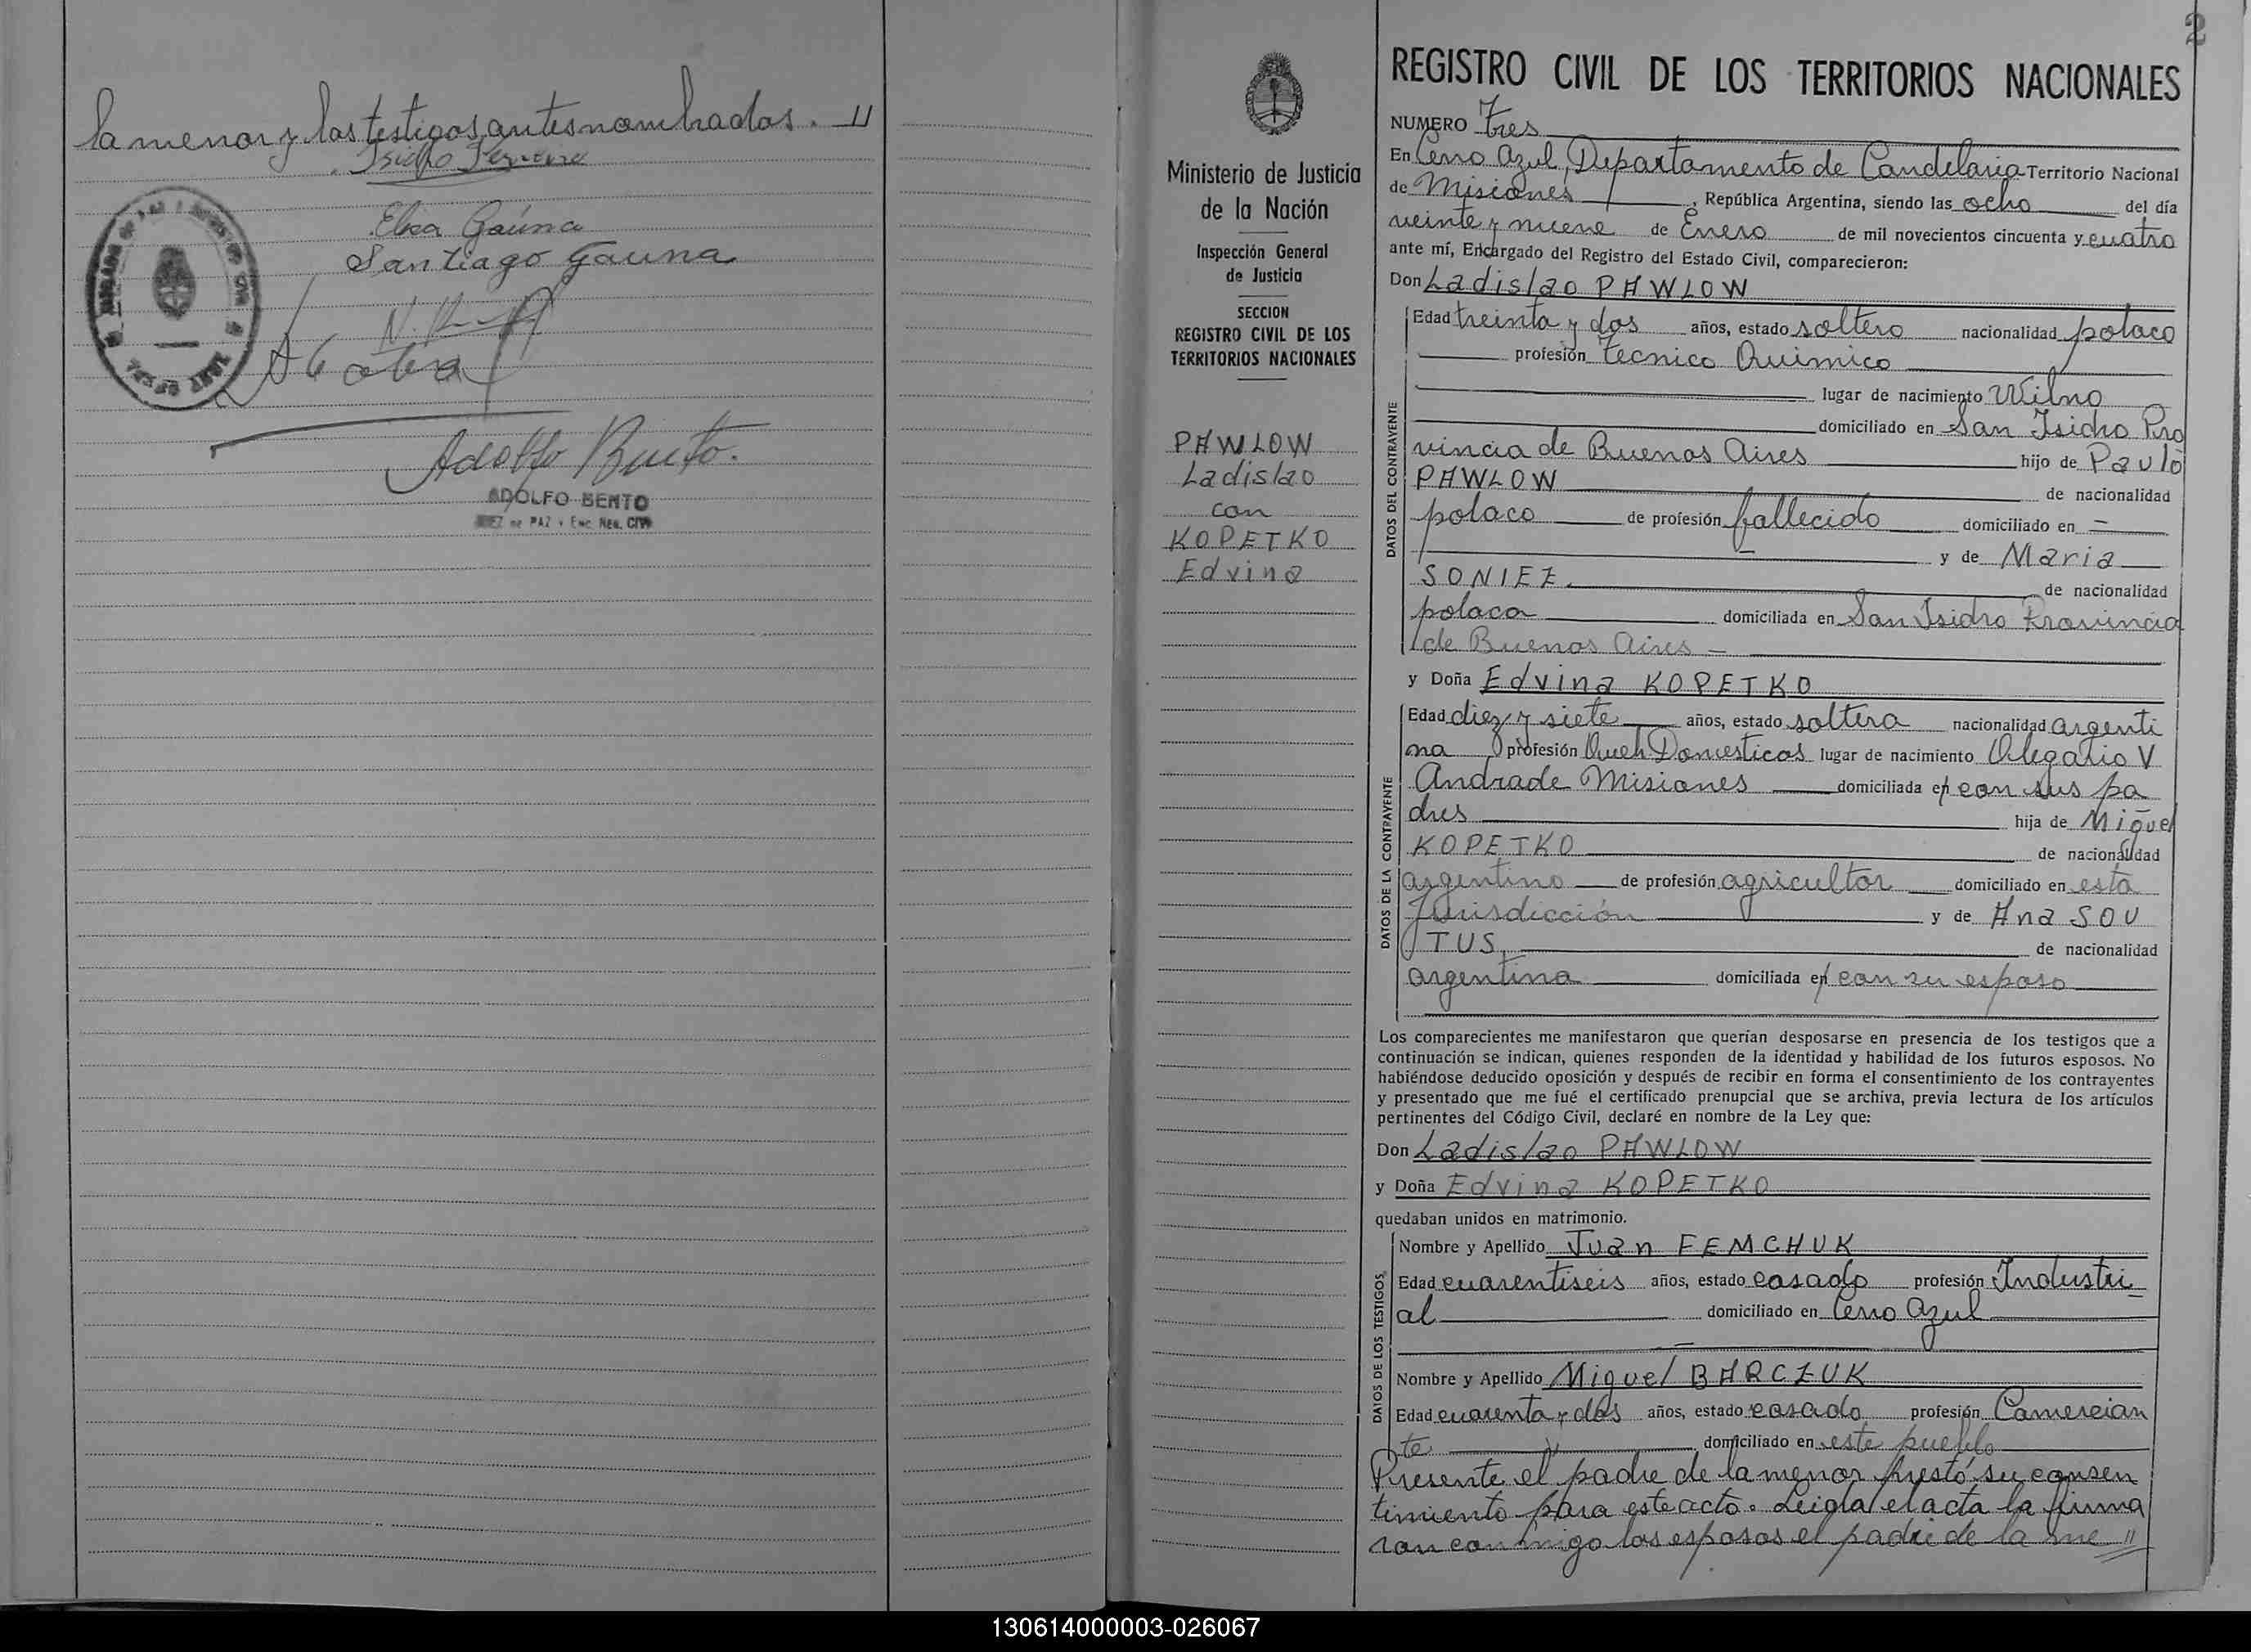 la menor y los testigos antes nombrados. //
Isidro
Elsa Gaúna
Santiago Gauna
Adolfo Bento.
ADOLFO BENTO
JUEZ DE PAZ y Enc. REG. CIVIL
2
Ministerio de Justicia
de la Nación
Inspección General
de Justicia
SECCION
REGISTRO CIVIL DE LOS
TERRITORIOS NACIONALES
PAWLOW
Ladislao
con
KOPETKO
Edvina
REGISTRO CIVIL DE LOS TERRITORIOS NACIONALES
NUMERO Tres
En Cerro Azul, Departamento de Candelaria Territorio Nacional
de Misiones, República Argentina, siendo las ocho del día
veinte y nueve de Enero de mil novecientos cincuenta y cuatro
ante mí, Encargado del Registro del Estado Civil, comparecieron:
Don Ladislao PAWLOW
DATOS DEL CONTRAYENTE
Edad treinta y dos años, estado soltero nacionalidad polaco
profesión Tecnico Quimico
lugar de nacimiento Wilno
domiciliado en San Isidro Pro
vincia de Buenos Aires hijo de Paulo
PAWLOW de nacionalidad
polaco de profesión fallecido domiciliado en –
y de Maria
SONIEZ. de nacionalidad
polaca domiciliada en San Isidro Provincia
de Buenos Aires –
y Doña Edvina KOPETKO
DATOS DE LA CONTRAYENTE
Edad diez y siete años, estado soltera nacionalidad argenti
na profesión Queh Domesticos lugar de nacimiento Olegario V
Andrade Misiones domiciliada en con sus pa
dres hija de Miguel
KOPETKO de nacionalidad
argentino de profesión agricultor domiciliado en esta
Jurisdicción y de Ana SOU
TUS, de nacionalidad
argentina domiciliada en con su esposo
Los comparecientes me manifestaron que querían desposarse en presencia de los testigos que a
continuación se indican, quienes responden de la identidad y habilidad de los futuros esposos. No
habiéndose deducido oposición y después de recibir en forma el consentimiento de los contrayentes
y presentado que me fué el certificado prenupcial que se archiva, previa lectura de los artículos
pertinentes del Código Civil, declaré en nombre de la Ley que:
Don Ladislao PAWLOW
y Doña Edvina KOPETKO
quedaban unidos en matrimonio.
DATOS DE LOS TESTIGOS
Nombre y Apellido Juan FEMCHUK
Edad cuarentiseis años, estado casado profesión Industri
al domiciliado en Cerro Azul
Nombre y Apellido Miguel BARCZUK
Edad cuarenta y dos años, estado casado profesión Comercian
te domiciliado en este pueblo
Presente el padre de la menor prestó su consen
timiento para este acto. Leida el acta la firma
ron conmigo los esposos el padre de la me //
130614000003-026067